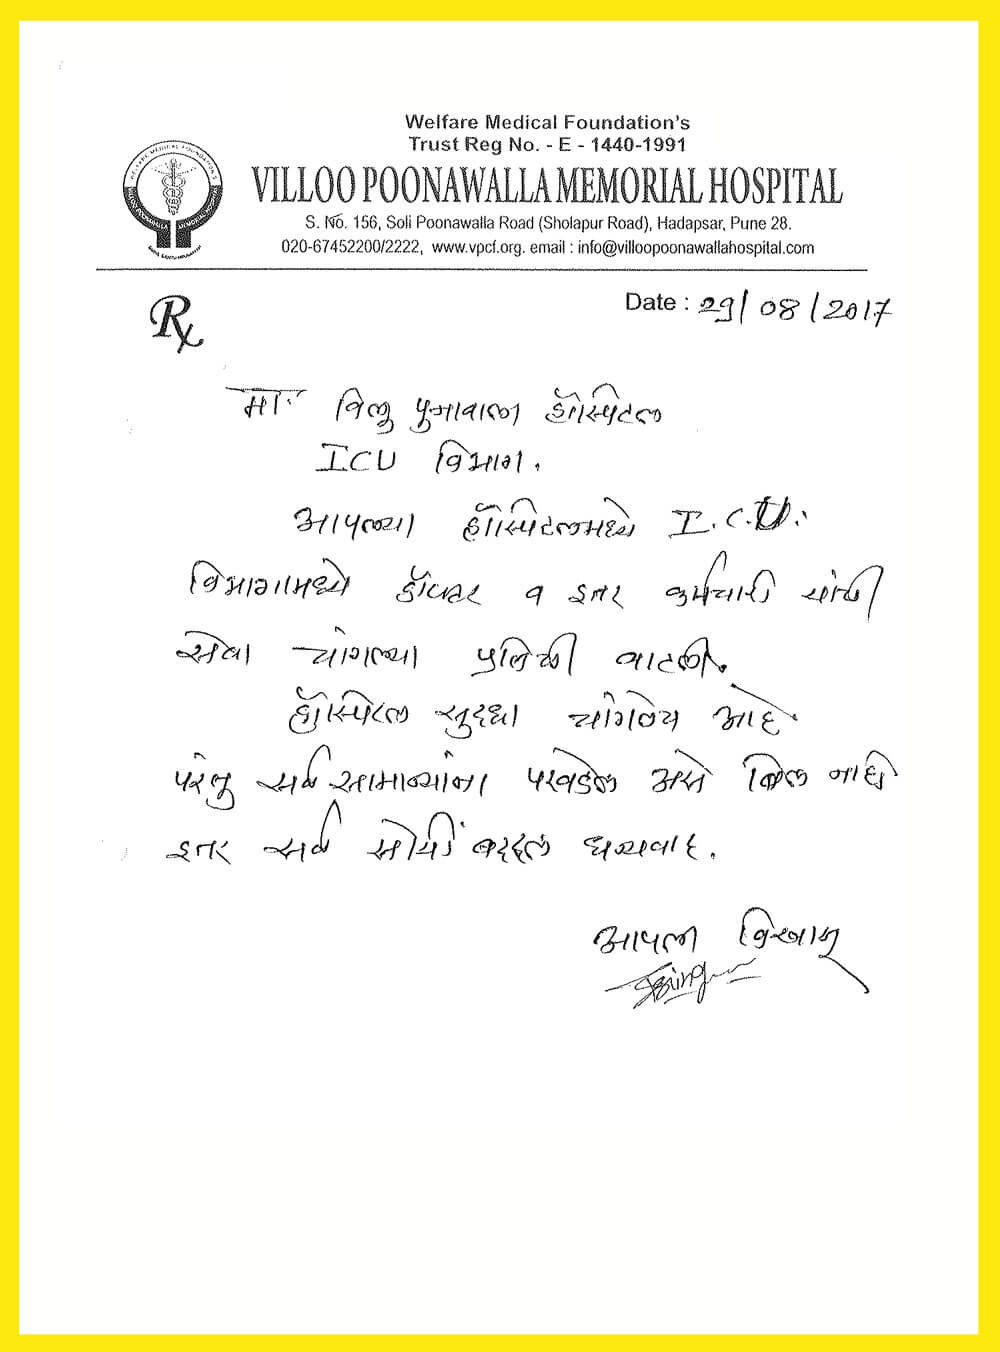 Welfare Medical Foundation's
Trust Reg No. - E - 1440-1991
VILLOO POONAWALLA MEMORIAL HOSPITAL
S. No. 156, Soli Poonawalla Road (Sholapur Road), Hadapsar, Pune 28.
020-67452200/2222, www.vpcf.org. email : info@villoopoonawallahospital.com
Rx
Date : 29/08/2017
मा. विलु पुनावाला हॉस्पिटल
ICU विभाग.
आपल्या हॉस्पिटलमध्ये I.C.U.
विभागामध्ये डॉक्टर व इतर कर्मचारी यांची
सेवा चांगल्या प्रतिची वाटली.
हॉस्पिटल सुद्धा चांगलेच आहे
परंतु सर्व सामान्यांना परवडेल असे बिल नाही
इतर सर्व सोयीं बद्दल धन्यवाद.
आपला विश्वासू